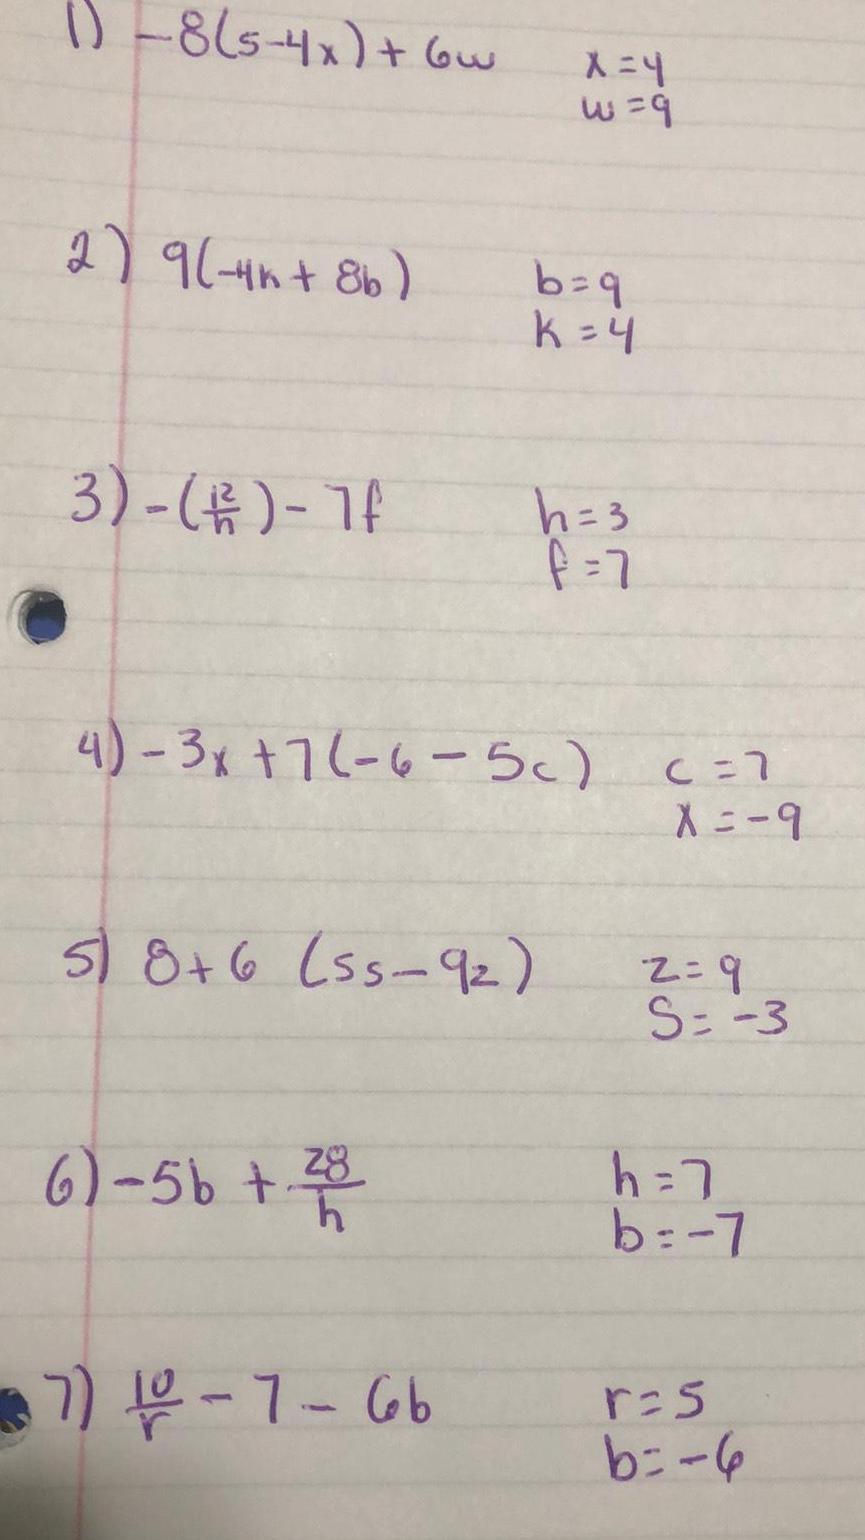 1) -8(5-4x) + 6w x = 4
w = 9
2) 9(-4k + 8b) b = 9
k = 4
3) -(12/h) - 7f h = 3
f = 7
4) -3x + 7(-6 - 5c) c = 7
x = -9
5) 8 + 6 (5s - 9z) z = 9
s = -3
6) -5b + 28/h h = 7
b = -7
7) 10/r - 7 - 6b r = 5
b = -6